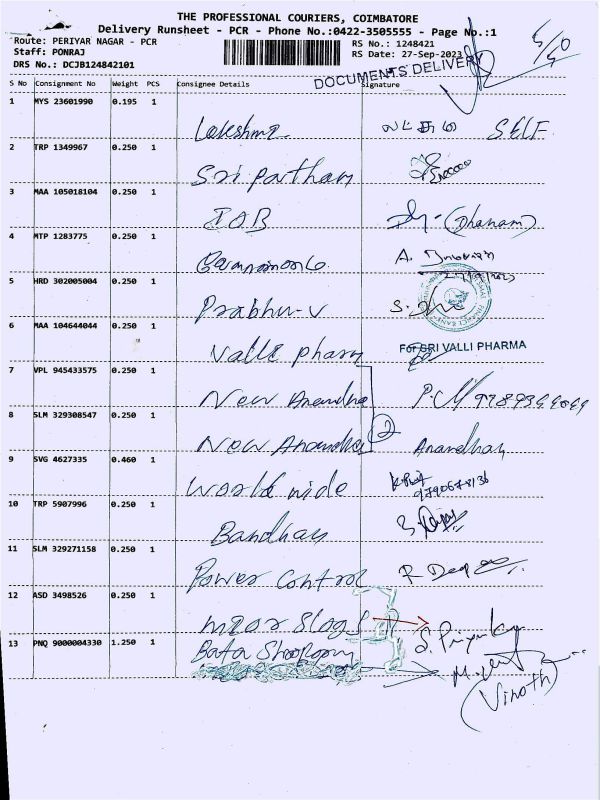 THE PROFESSIONAL COURIERS, COIMBATORE
Delivery Runsheet - PCR - Phone No.:0422-3505555 - Page No.:1
Route: PERIYAR NAGAR - PCR
RS No.: 1248421
Staff: PONRAJ
RS Date: 27-Sep-2023
DRS No.: DCJB124842101
DOCUMENTS DELIVERY
S No Consignment No Weight PCS Consignee Details Signature
1 MYS 23601990 0.195 1
Lakshmi SELF
2 TRP 1349967 0.250 1
Sri Partham
3 MAA 105018104 0.250 1
IOB (Dhanam)
4 MTP 1283775 0.250 1
A.
5 HRD 302005004 0.250 1
Prabhu-V S.
6 MAA 104644044 0.250 1
Valli pharm For SRI VALLI PHARMA
7 VPL 945433575 0.250 1
New Anandha
8 SLM 329308547 0.250 1
New Anandha 2 Anandhan
9 SVG 4627335 0.460 1
World wide
10 TRP 5907996 0.250 1
Bandhan
11 SLM 329271158 0.250 1
Power Control
12 ASD 3498526 0.250 1
S. Priyanka
13 PNQ 9000004330 1.250 1
Bata Showroom
(Vinoth)